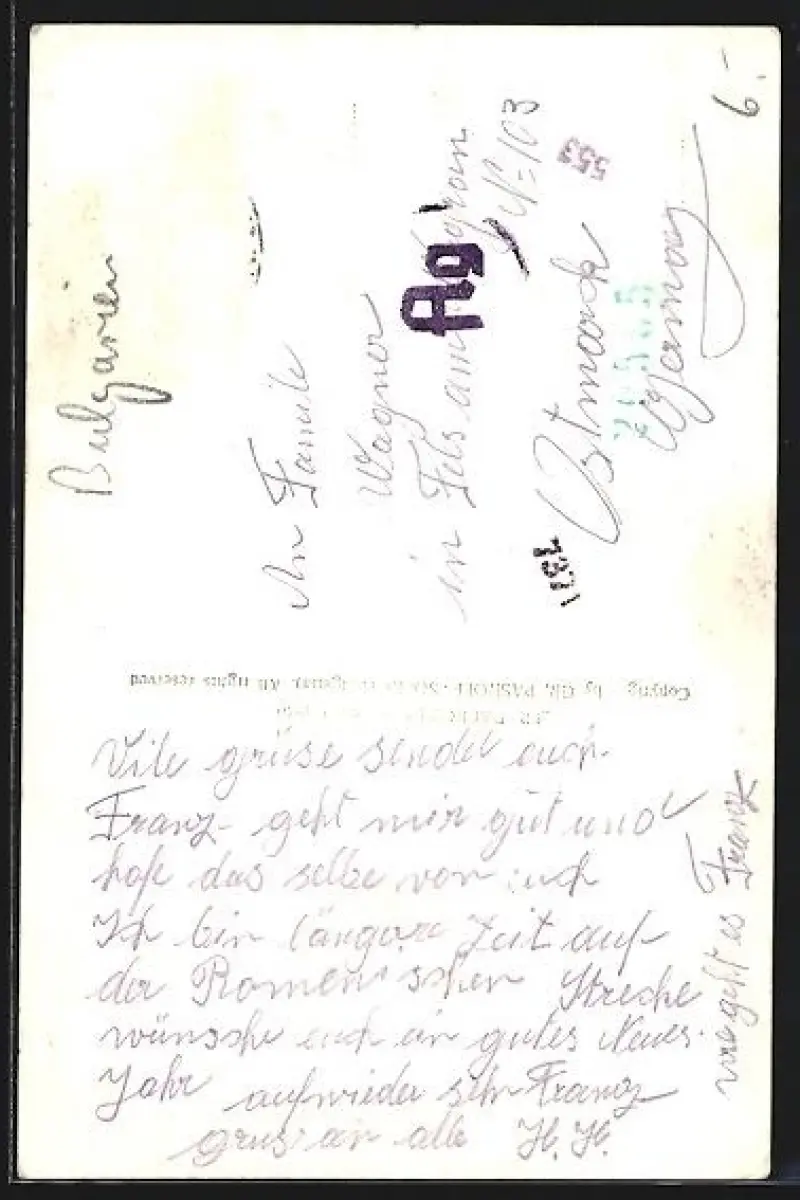 Bulgarien
6.-
An Famile
Wagner
in Fels am
№ 103
553
Ostmark
Germany
Ag
1331
by GR. PASKOFF All rights reserved
Vile grüse sendet euch
Franz geht mir gut und
hofe das selbe von euch
Ich bin längere Zeit auf
der Romenischen Streche
wünsche euch ein gutes Neues
Jahr aufwieder sehn Franz
grus an alle H. H.
wie geht es Franz